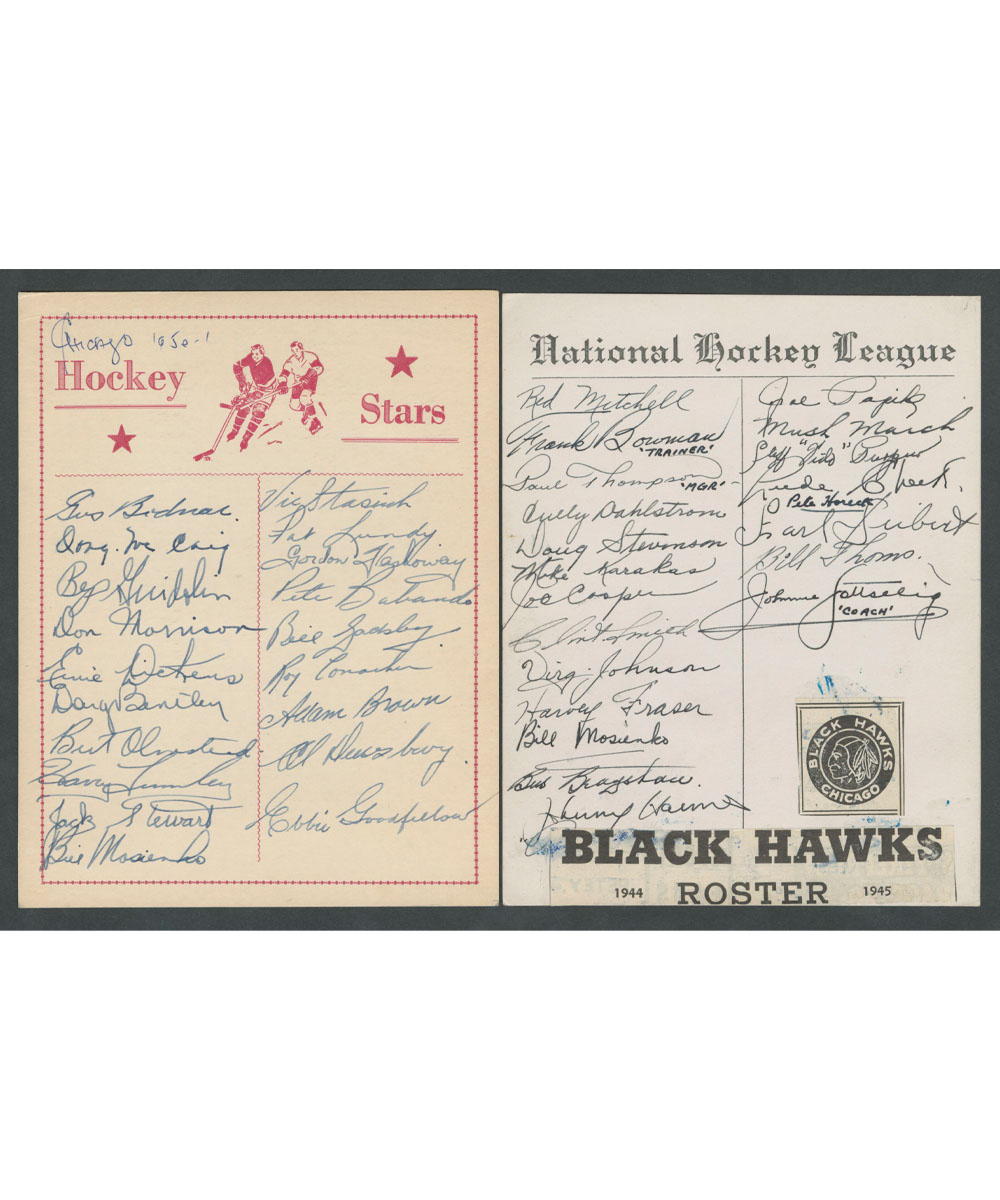 Chicago 1950-1
Hockey
Stars
Gus Bodnar.
Doug. Mc Caig
Bep Guidolin
Don Morrison
Ernie Dickens
Doug Bentley
Bert Olmstead.
Harry Lumley
Jack Stewart
Bill Mosienko
Vic Stasiuk
Pat Lundy
Gordon Fashoway
Pete Babando
Bill Gadsby
Roy Conacher
Adam Brown
Al Dewsbury.
Ebbie Goodfellow
National Hockey League
Red Mitchell
Frank Bowman
'TRAINER'
Paul Thompson -
'MGR'
Cully Dahlstrom
Doug Stevenson
Mike Karakas
Joe Cooper
Clint Smith
Virg. Johnson
Harvey Fraser
Bill Mosienko
Johnny Harms
Joe Papike
Mush March
Cliff "Fido" Purpur
Pete Horeck
Earl Seibert
Bill Thoms.
Johnnie Gottselig
'COACH'
BLACK HAWKS
CHICAGO
BLACK HAWKS
1944 ROSTER 1945